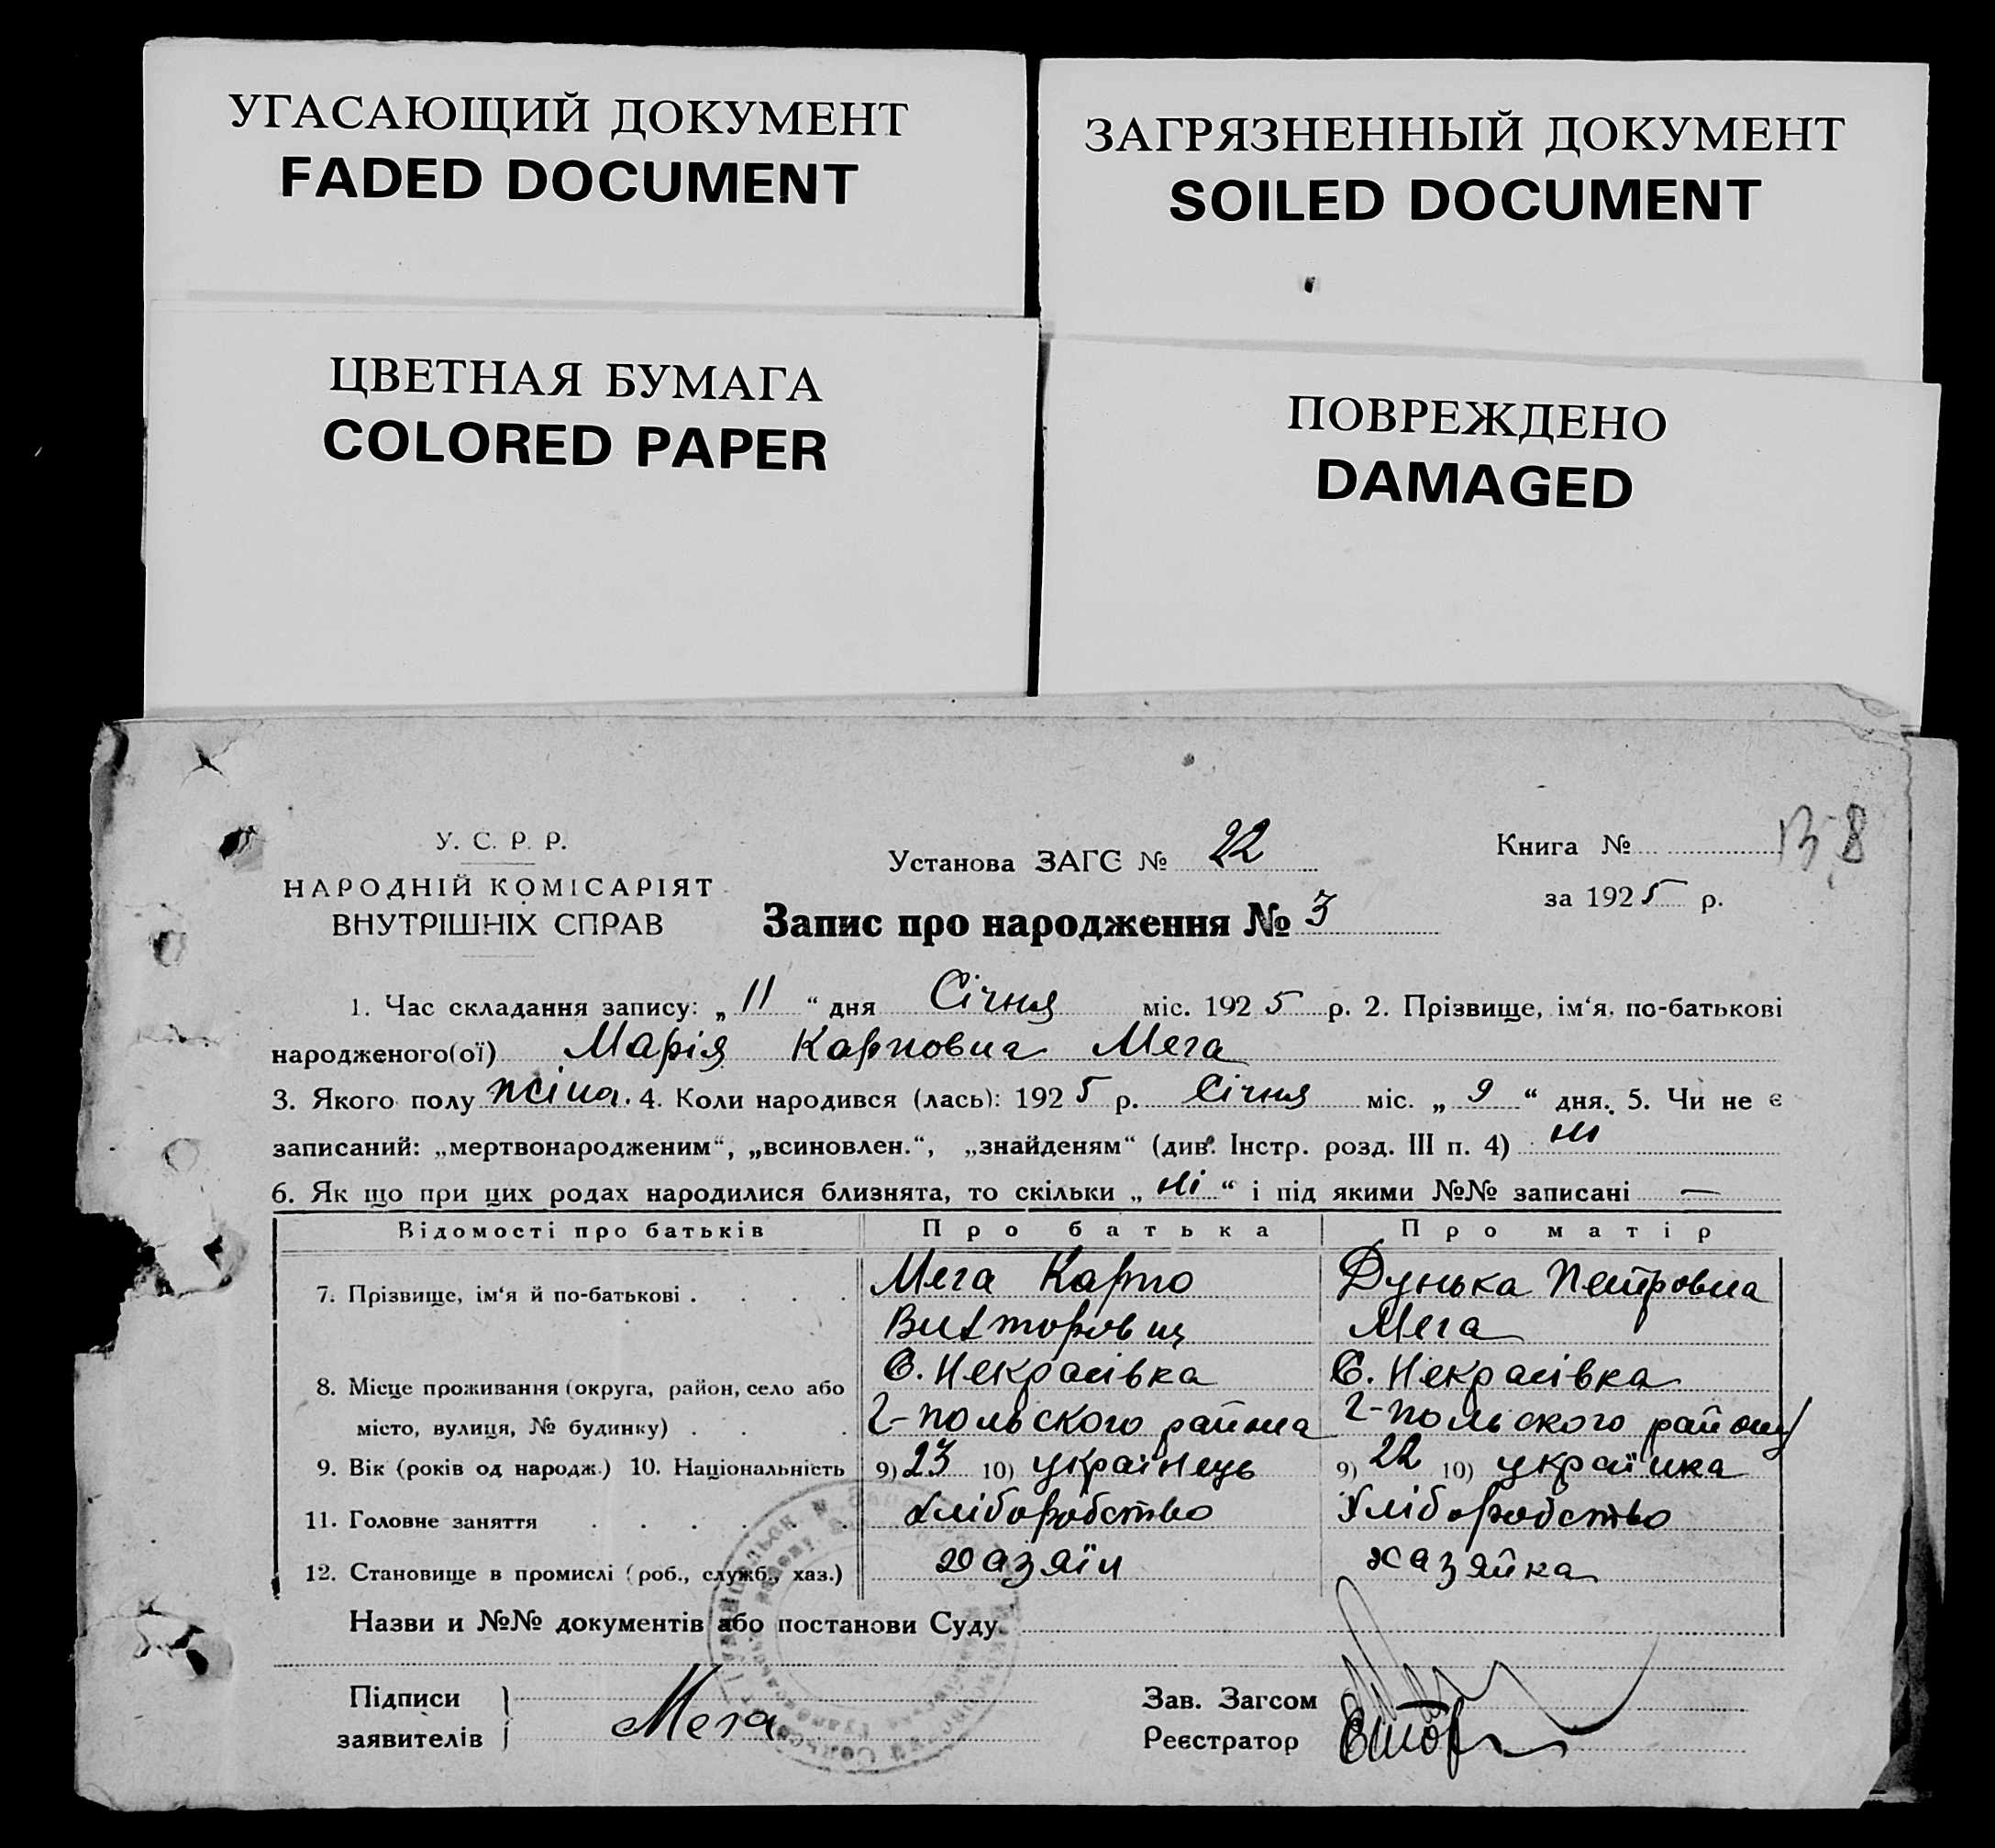 УГАСАЮЩИЙ ДОКУМЕНТ
FADED DOCUMENT
ЗАГРЯЗНЕННЫЙ ДОКУМЕНТ
SOILED DOCUMENT
ЦВЕТНАЯ БУМАГА
COLORED PAPER
ПОВРЕЖДЕНО
DAMAGED
У. С. Р. Р.
НАРОДНІЙ КОМІСАРІЯТ
ВНУТРІШНІХ СПРАВ
Установа ЗАГС № 22
Запис про народження № 3
Книга №
за 1925 р.
1. Час складання запису: „ 11 “ дня Січня міс. 1925 р. 2. Прізвище, ім‘я, по-батькові
народженого(ої) Марія Карповна Мега
3. Якого полу жіна. 4. Коли народився (лась): 1925 р. Січня міс. „ 9 “ дня. 5. Чи не є
записаний: „мертвонародженим“, „всиновлен.“, „знайденям“ (див. Інстр. розд. III п. 4) ні
6. Як що при цих родах народилися близнята, то скільки „ ні “ і під якими №№ записані —
Відомості про батьків Про батька Про матір
7. Прізвище, ім‘я й по-батькові . . . . Мега Карпо Дунька Петровна
Викторовиц Мега
8. Місце проживання (округа, район, село або С. Некрасівка С. Некрасівка
місто, вулиця, № будинку) . . . Г-польского района Г-польского району
9. Вік (років од народж.) 10. Національність 9) 23 10) українець 9) 22 10) українка
11. Головне заняття . . . . . . Хліборобство Хліборобство
12. Становище в промислі (роб., служб., хаз.) хазяїн хазяйка
Назви и №№ документів або постанови Суду
Підписи
заявителів
Мега
Зав. Загсом
Реєстратор